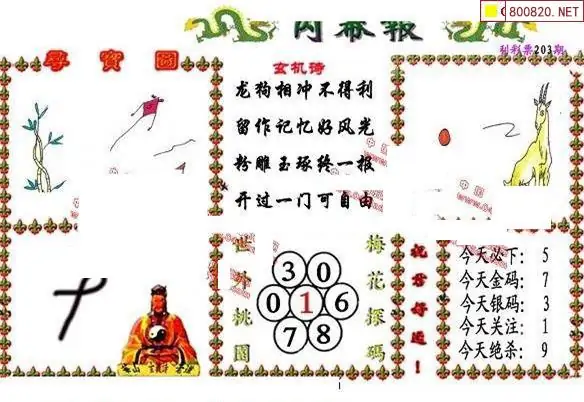 C800820.NET
内幕报
利彩票203期
寻宝图
玄机诗
龙狗相冲不得利
留作记忆好风光
粉雕玉琢终一报
开过一门可自由
世外桃园
梅花探码
3 0
0 1 6
7 8
祝君好运！
今天必下： 5
今天金码： 7
今天银码： 3
今天关注： 1
今天绝杀： 9